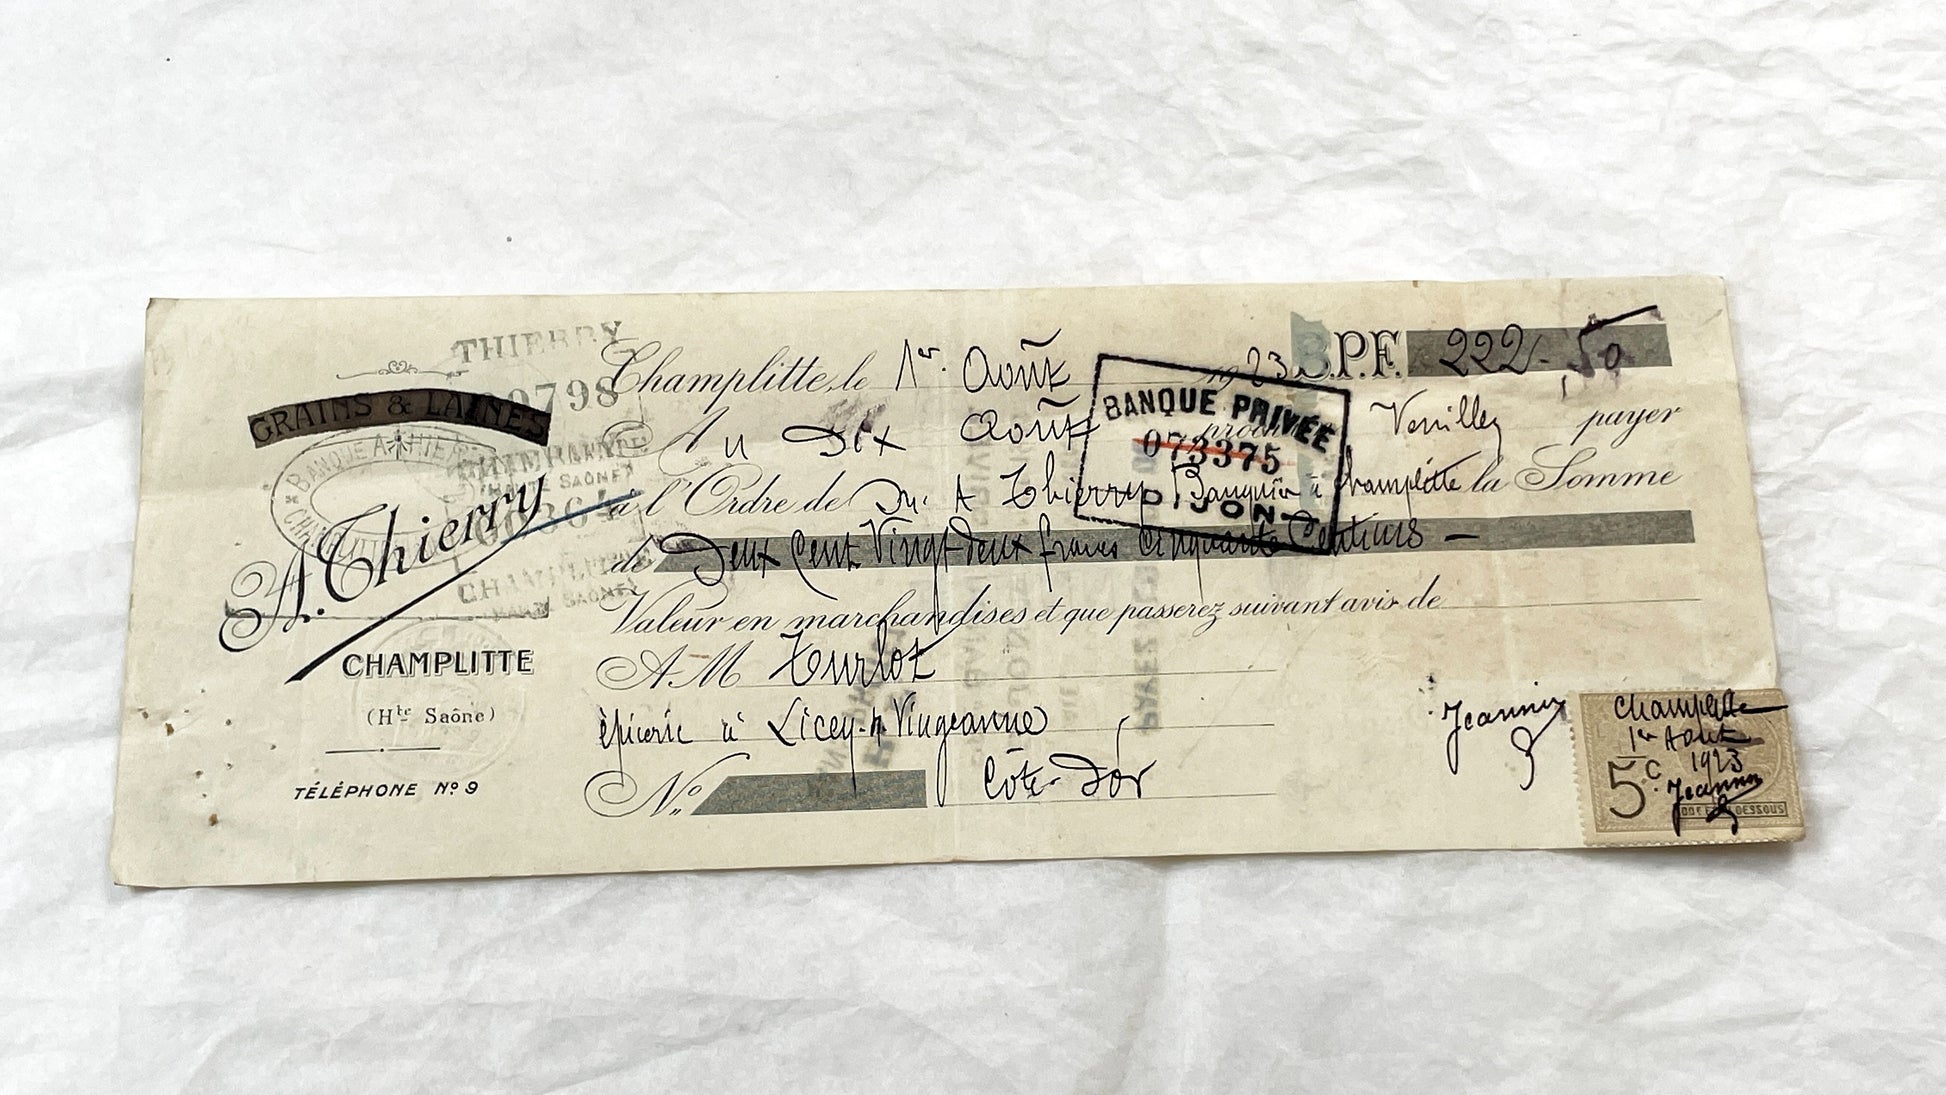 THIERRY
GRAINS & LAINES
A. Thierry
CHAMPLITTE
(Hte Saône)
TÉLÉPHONE No 9
Champlitte, le 1er Août 1923 B.P.F. 222-50
Au Dix Août prochain Veuillez payer
à l'Ordre de Mr A Thierry Banquier à Champlitte la Somme
de Deux Cent Vingt deux francs Cinquante Centimes
Valeur en marchandises et que passerez suivant avis de
A M Turlot
épicerie à Licey-s/Vingeanne
Côte-d'Or
No
BANQUE PRIVÉE
073375
DIJON
Jeannin
Champlitte
1er Août
1923
5c
Jeannin